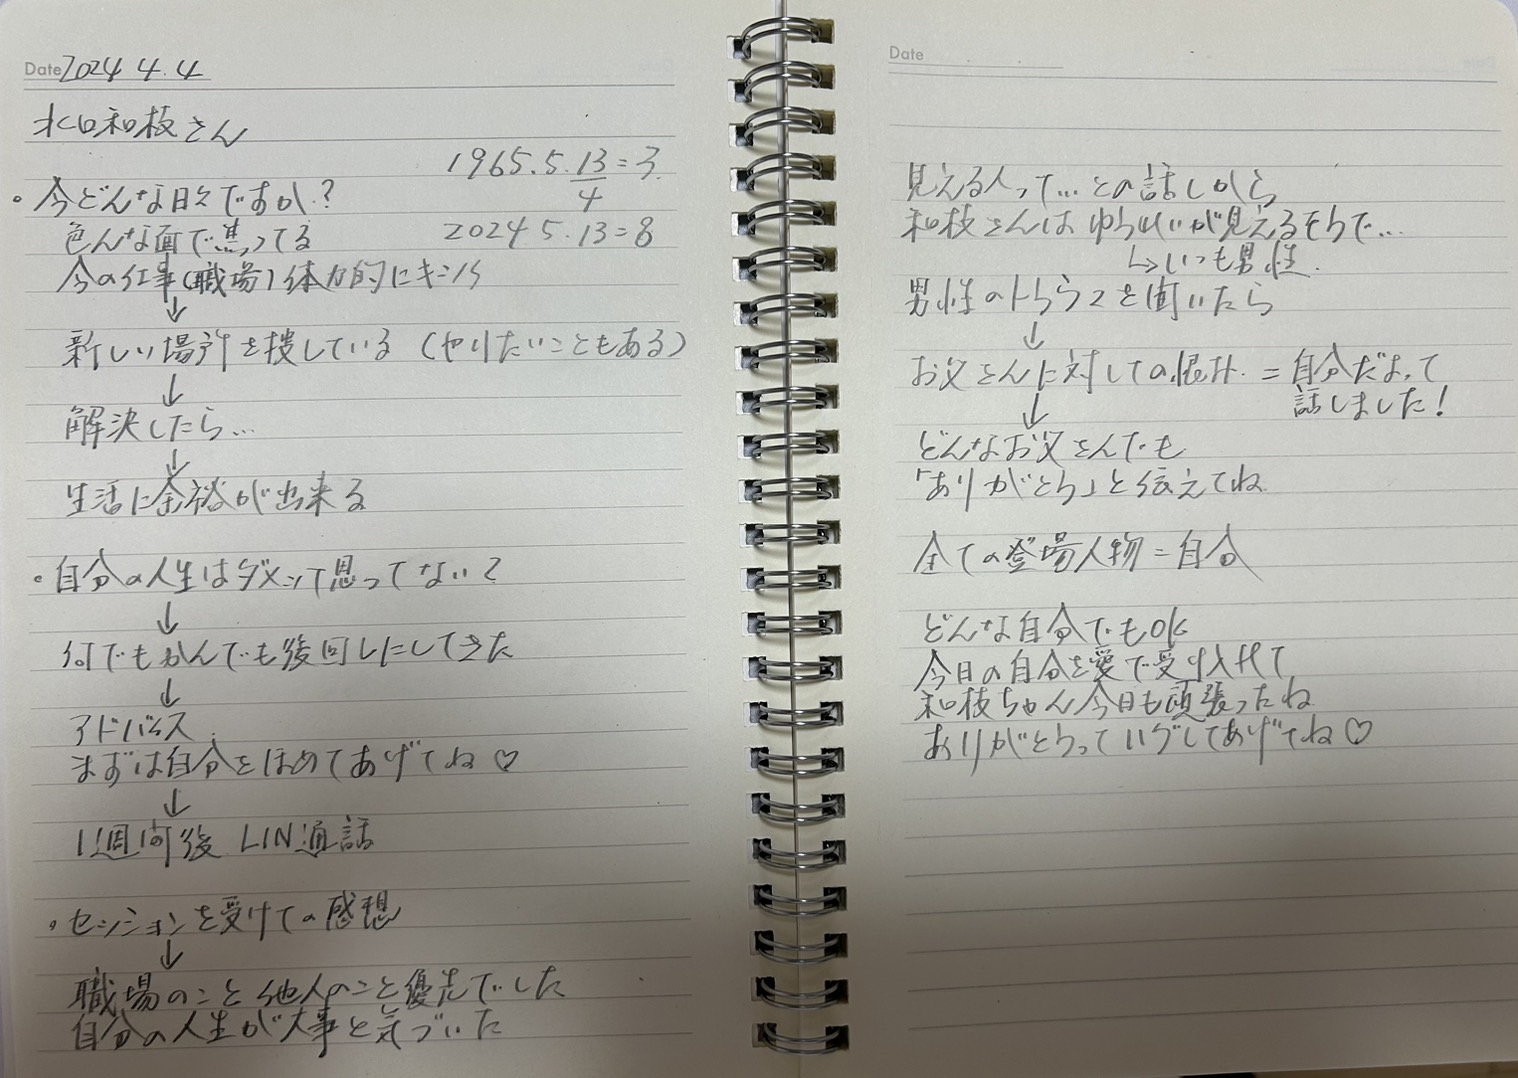 Date 2024 4.4
水口和枝さん
1965.5.13=3
4
・今どんな日々ですか?
色んな面で焦ってる
2024 5.13=8
今の仕事(職場)体力的にキツイ
↓
新しい場所を捜している(やりたいこともある)
↓
解決したら…
↓
生活に余裕が出来る
・自分の人生はダメって思ってない?
↓
何でもかんでも後回しにしてきた
↓
アドバイス
まずは自分をほめてあげてね♡
↓
1週間後 LIN通話
・セッションを受けての感想
↓
職場のこと他人のこと優先でした
自分の人生が大事と気づいた
Date
見える人って…との話しから
和枝さんはゆうれいが見えるそうで…
↳いつも男性.
男性のトラウマを聞いたら
↓
お父さんに対しての恨み.=自分だよって
話しました!
↓
どんなお父さんでも
「ありがとう」と伝えてね
全ての登場人物=自分
どんな自分でもOK
今日の自分を愛で受け入れて
和枝ちゃん今日も頑張ったね
ありがとうってハグしてあげてね♡